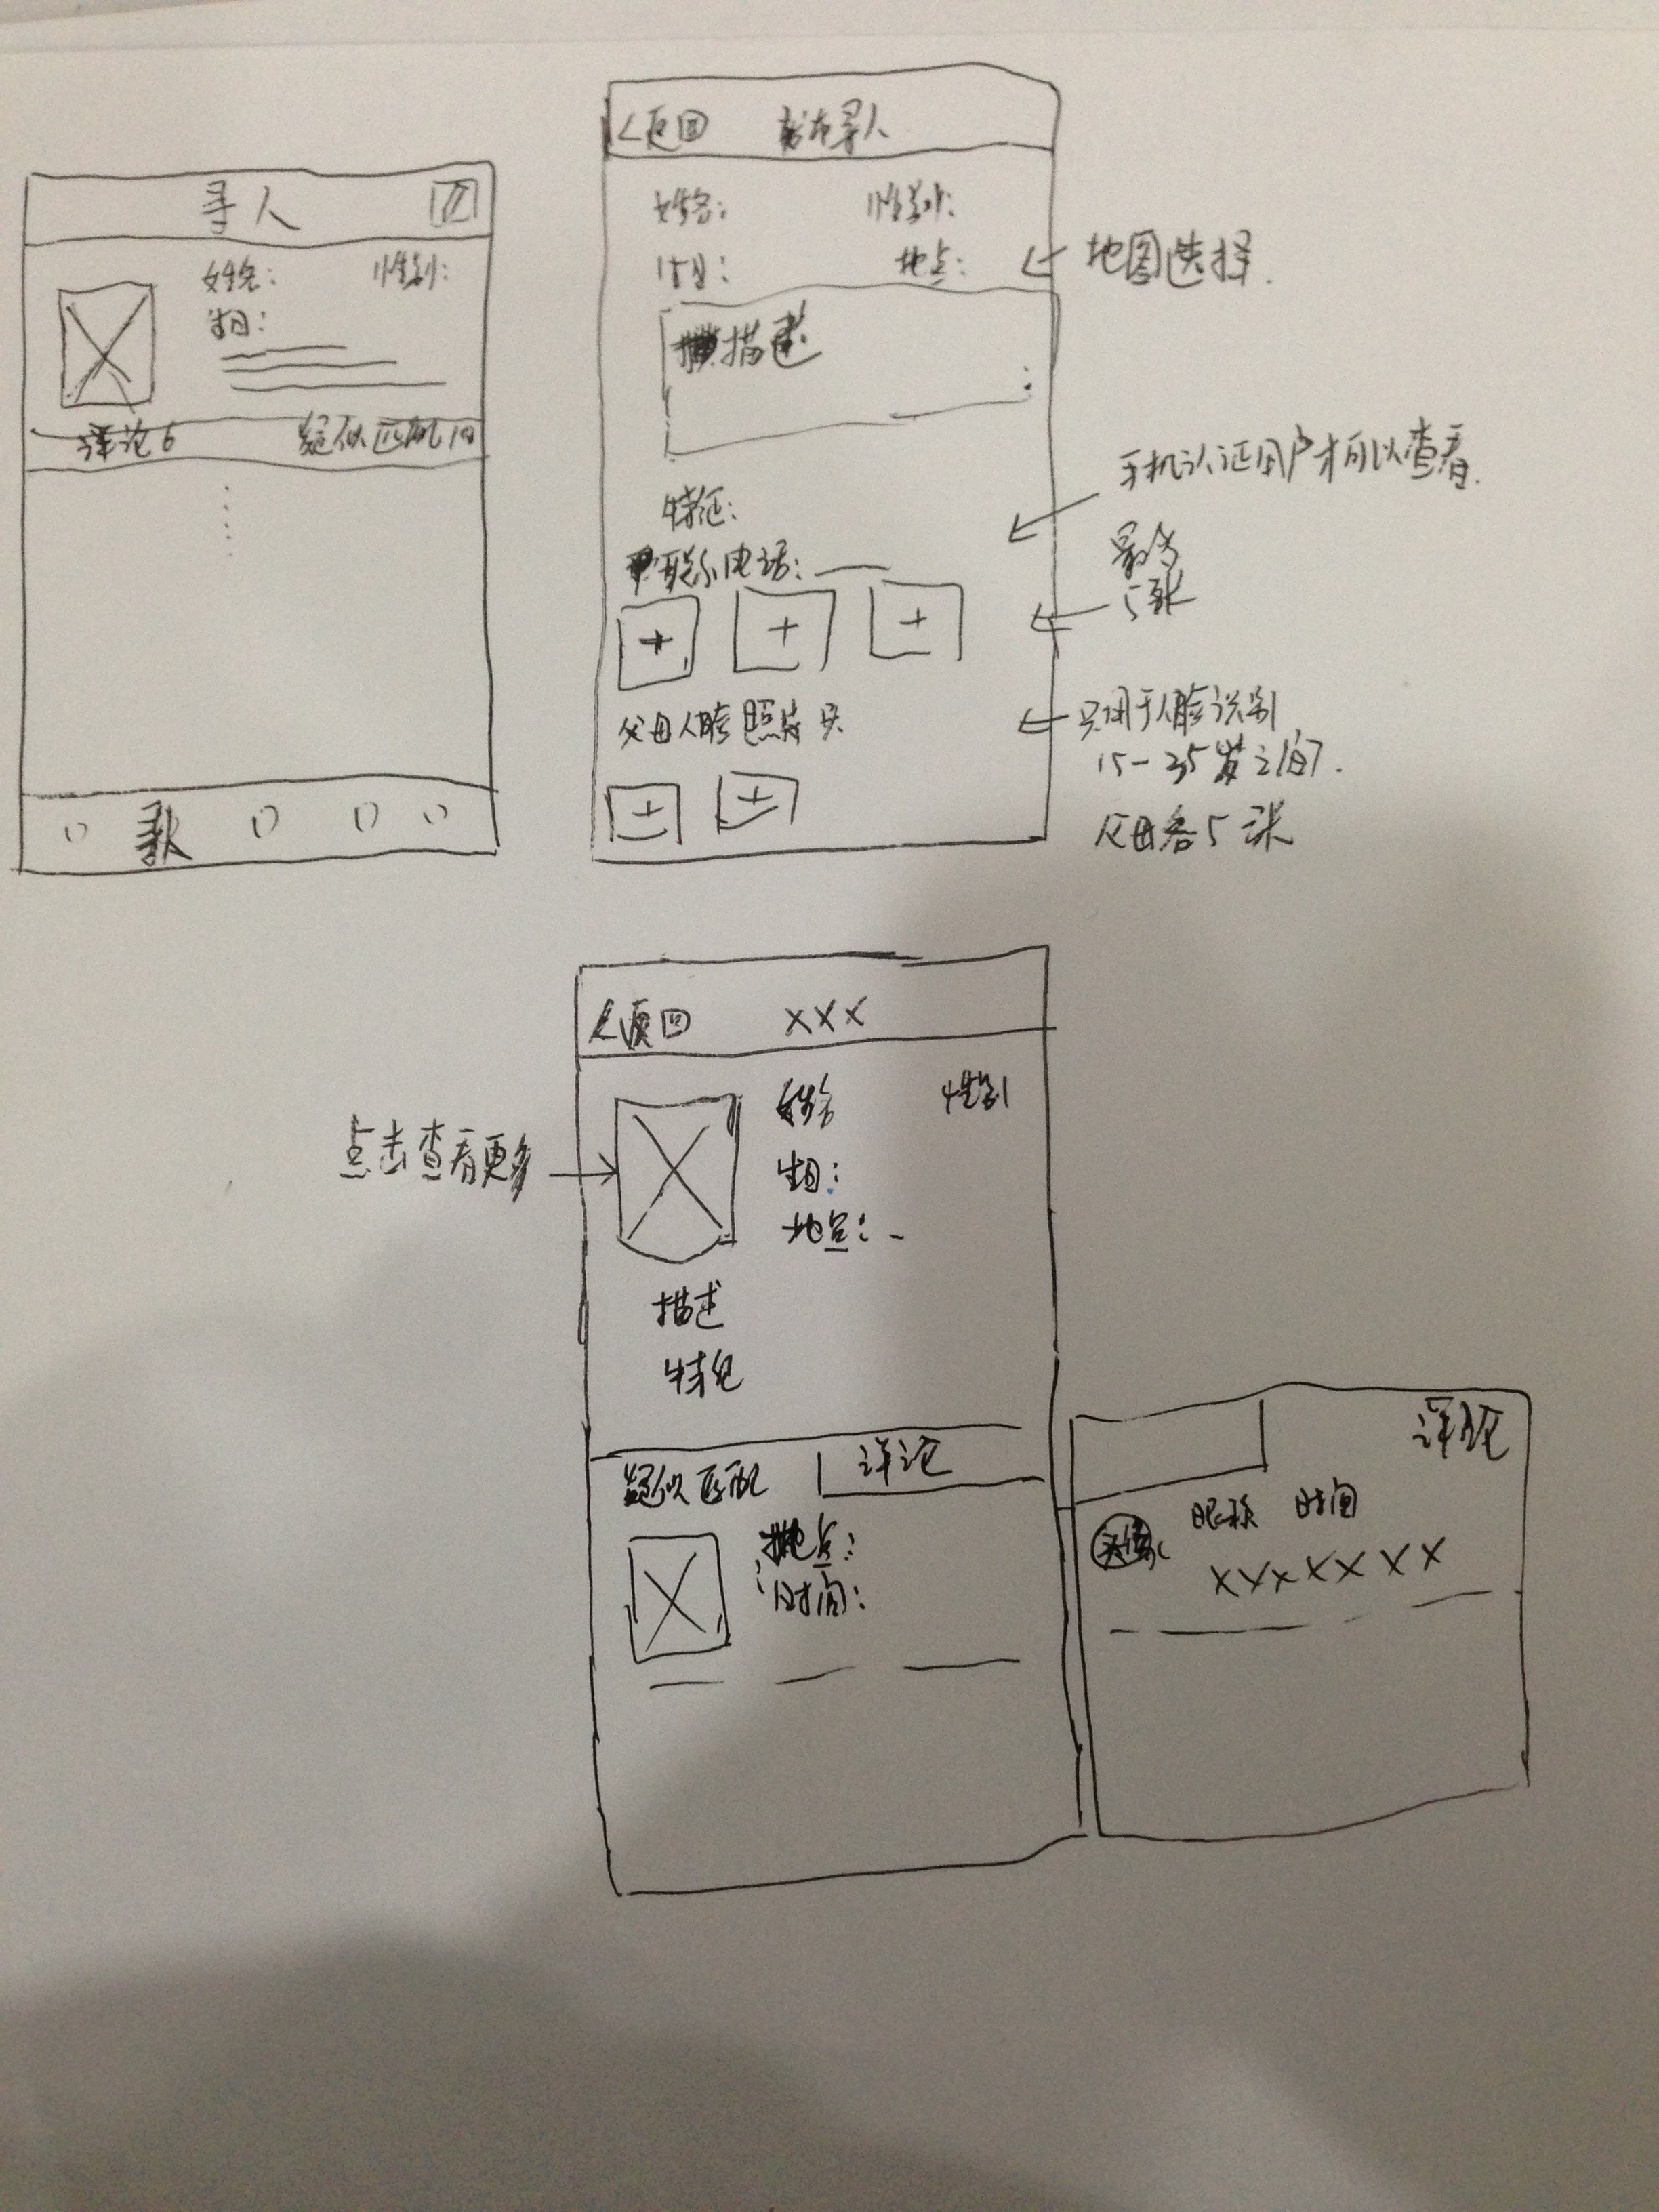 寻人
姓名: 性别:
生日:
评论6 疑似匹配10
寻人
<返回 发布寻人
姓名: 性别:
生日: 地点:
地图选择.
描述
特征:
手机认证用户才可以查看.
联系电话:
最多
5张
父母人脸照片
只用于人脸识别
15-35岁之间.
父母各5张
<返回 XXX
姓名 性别
生日:
地点:
点击查看更多
描述
特征
疑似匹配 评论
地点:
时间:
评论
头像 昵称 时间
XXXXXXX